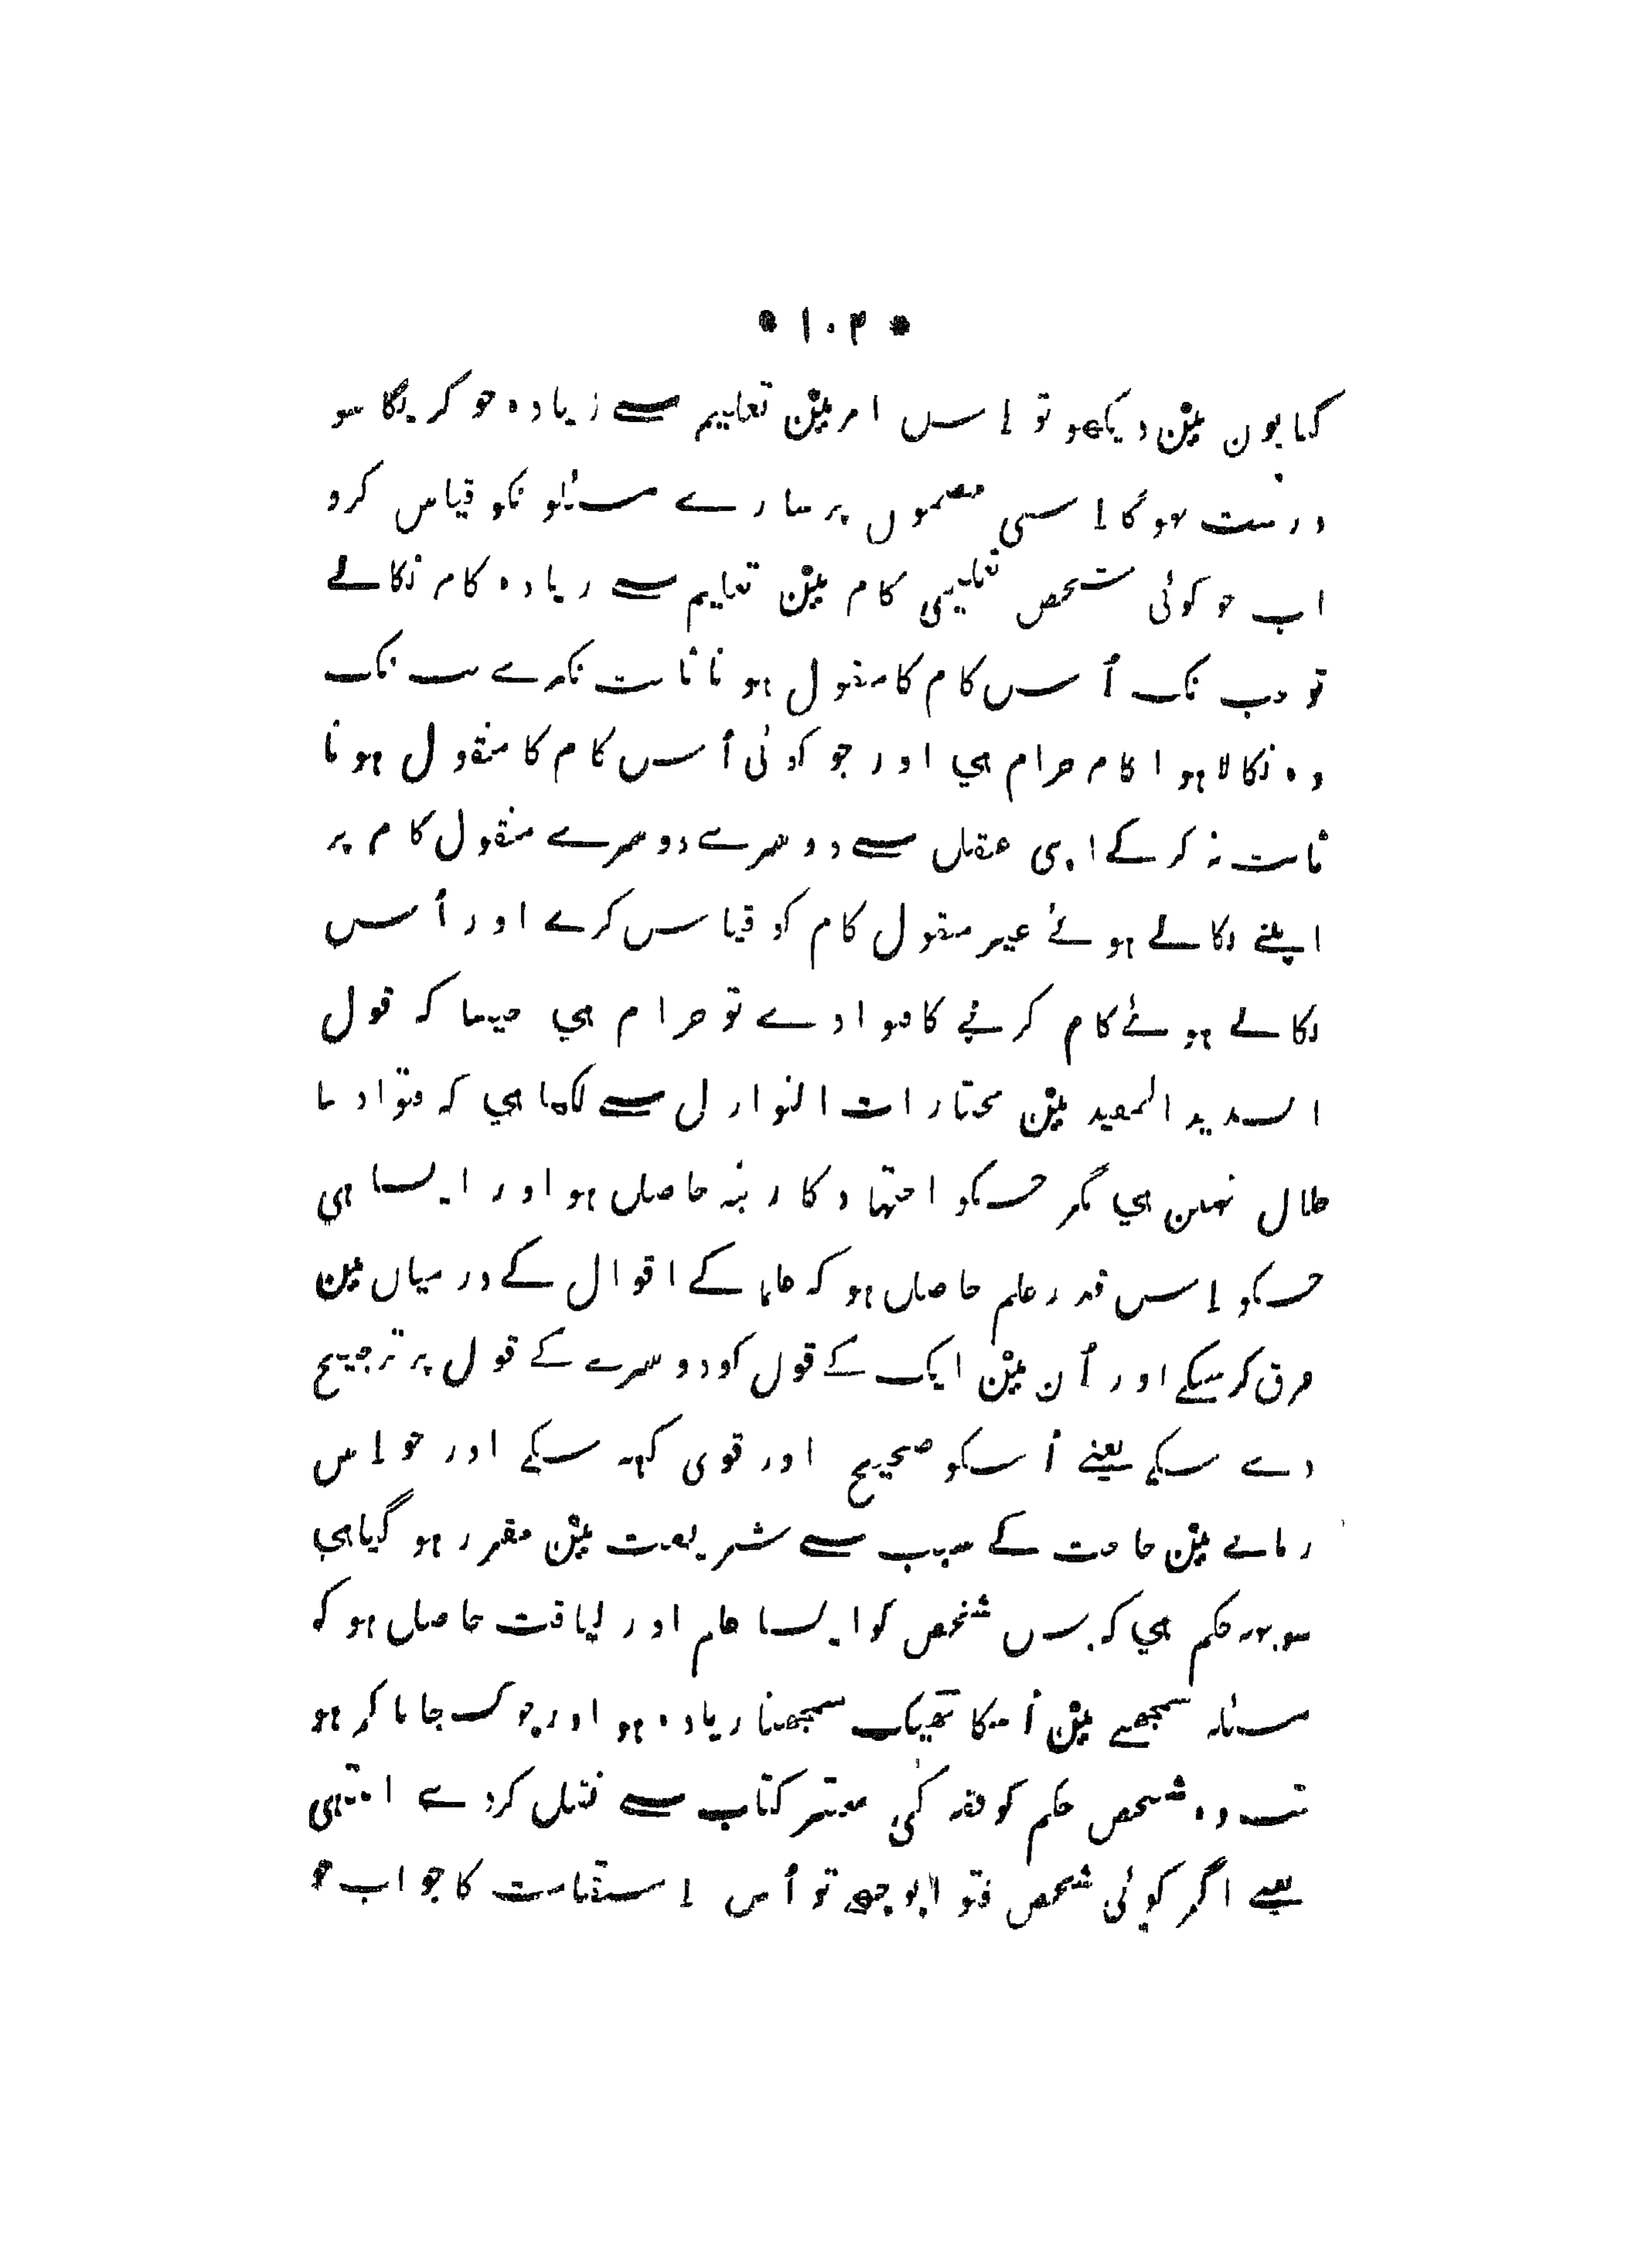 * ۱۰۴ *
کتابون مین دیکھو تو اِس امر مین تعلیم سے زیادہ جو کریگا سو
درست ہوگا اِسی مضمون پر سارے مسئلونکو قیاس کرو
اب جو کوئی شخص تعلیمی کام مین تعلیم سے زیادہ کام نکالے
تو جب تک اُس کام کا منقول ہونا ثابت نکرے تب تک
وہ نکالا ہوا کام حرام ہی اور جو کوئی اُس کام کا منقول ہونا
ثابت نہ کر کے اپنی عقل سے دوسرے دوسرے منقول کام پر
اپنے نکالے ہوئے غیر منقول کام کو قیاس کرے اور اُس
نکالے ہوئے کام کرنے کا فتوا دے تو حرام ہی جیسا کہ قول
السدید المفید مین مختارات النوازل سے لکھا ہی کہ فتوا دینا
حلال نہین ہی مگر جسکو اجتہاد کا رتبہ حاصل ہو اور ایسا ہی
جسکو اِس قدر علم حاصل ہو کہ علما کے اقوال کے درمیان مین
فرق کر سکے اور اُن مین ایک کے قول کو دوسرے کے قول پر ترجیح
دے سکے یعنے اُسکو صحیح اور قوی کہہ سکے اور جو اِس
زمانے مین حاجت کے سبب سے شریعت مین مقرر ہو گیا ہی
سو یہہ حکم ہی کہ جس شخص کو ایسا علم اور لیاقت حاصل ہو کہ
مسئلہ سمجھنے مین اُسکا ٹھیک سمجھنا زیادہ ہو اور چوک جانا کم ہو
تب وہ شخص حکم کو فقہ کی معتبر کتاب سے نقل کر دے انتہی
یعنے اگر کوئی شخص فتوا پوچھے تو اُس اِستفتا کا جواب جو